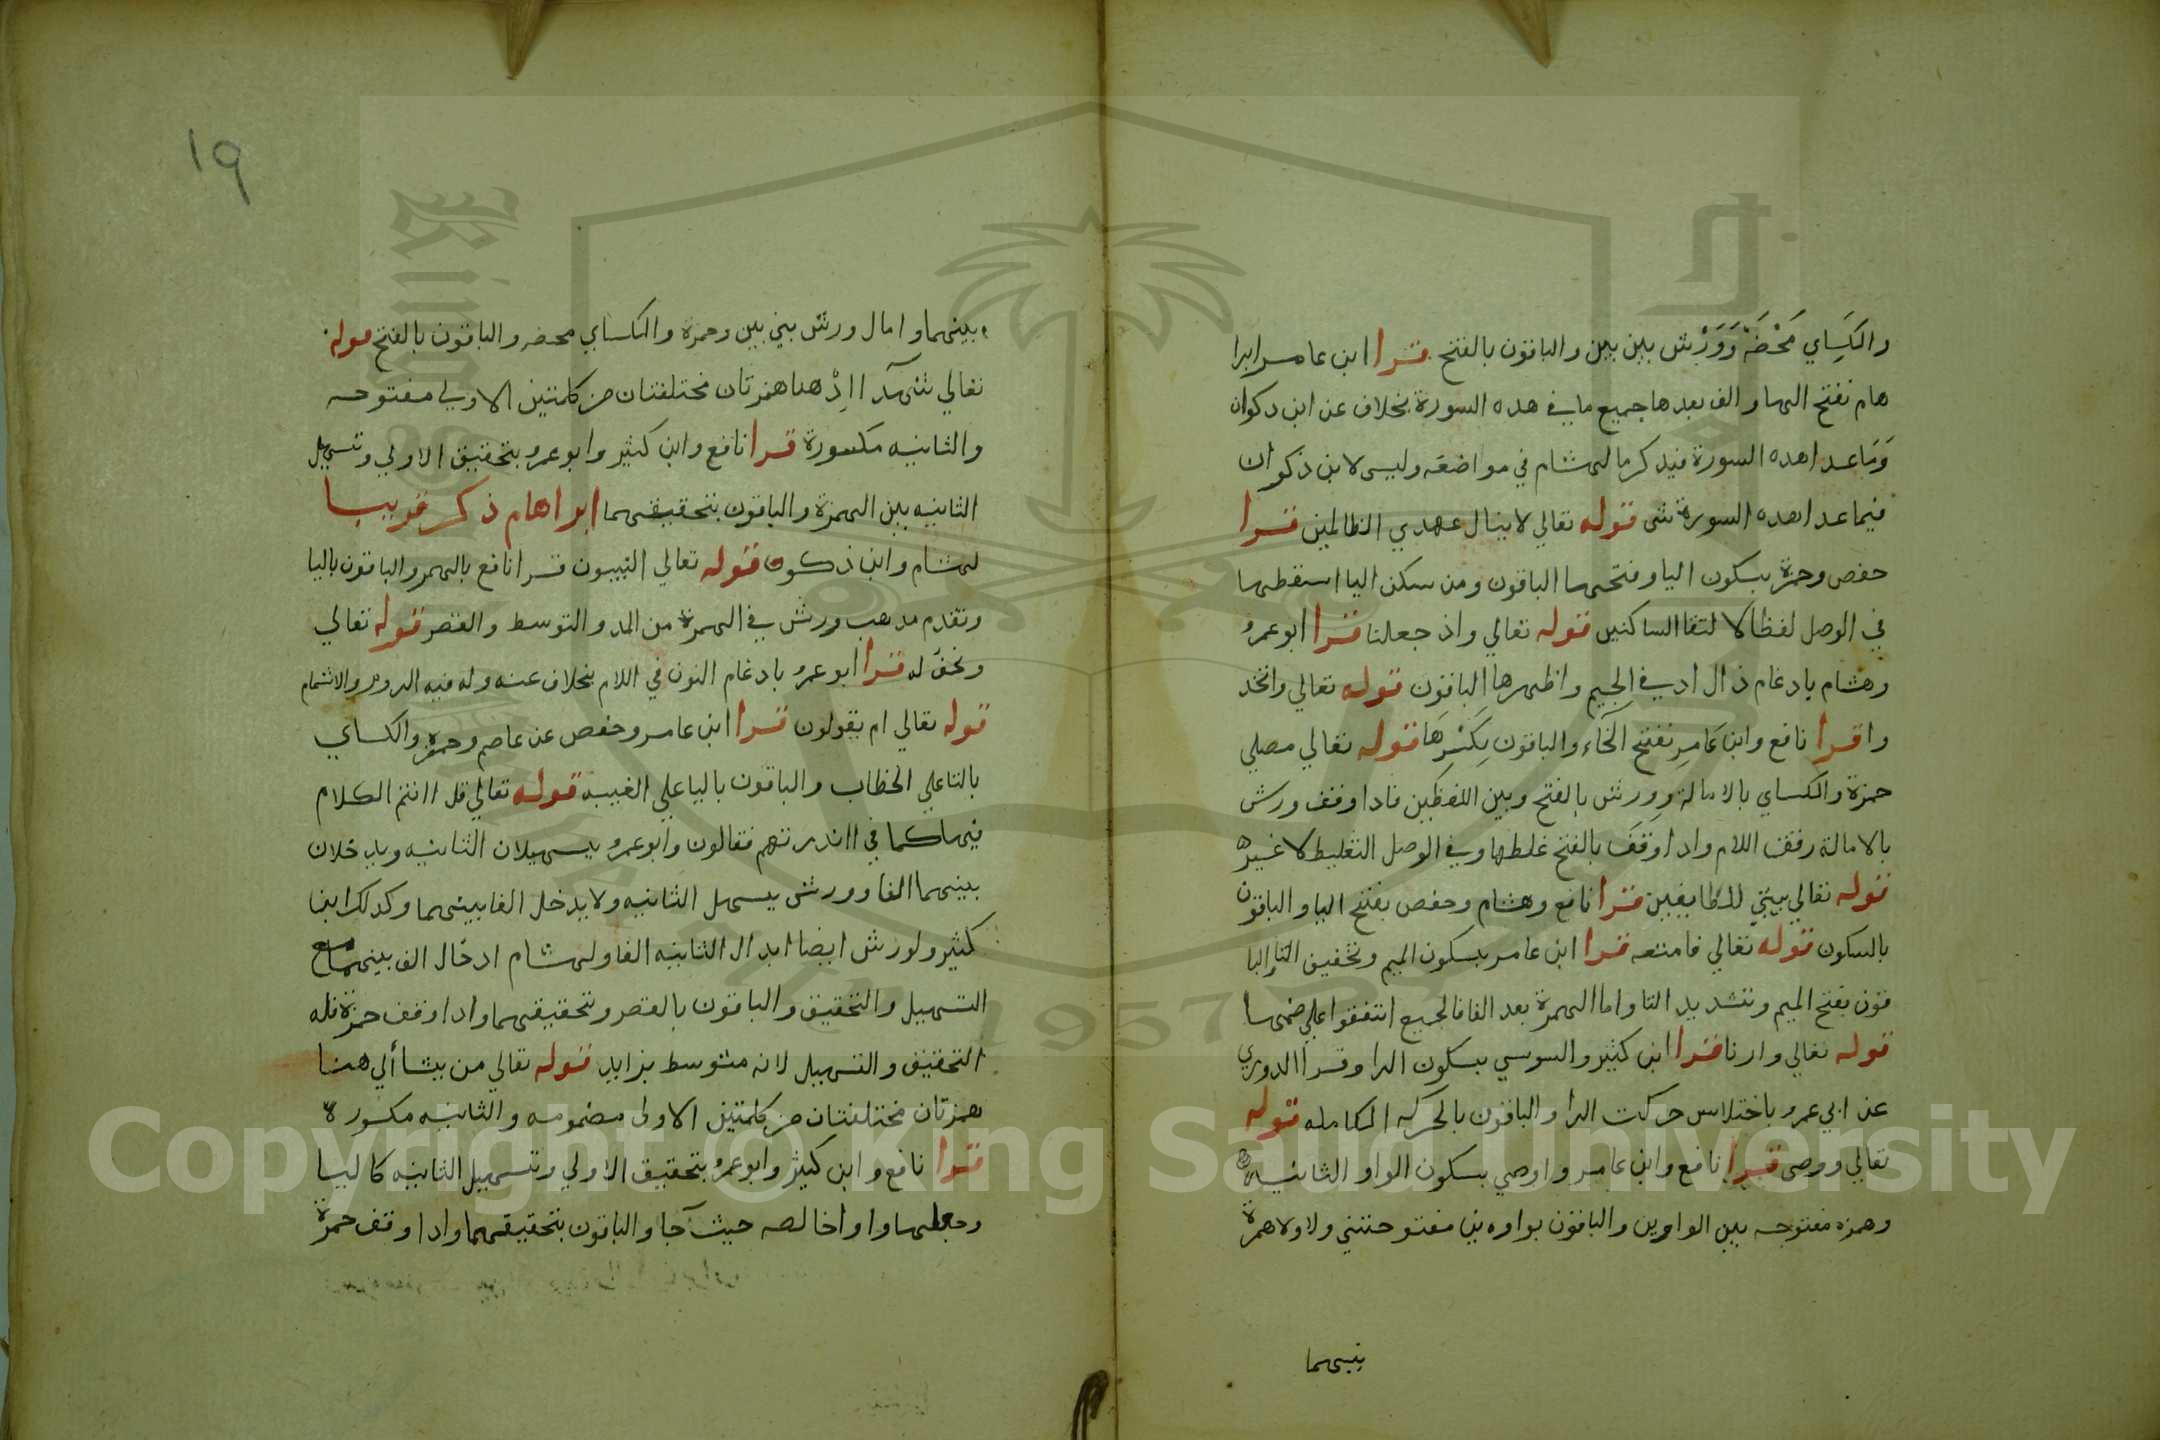 والكَسِاي مَحْضَة وَوَرْش بين بين والباقون بالفتح قرا ابن عامر ابرا
هام بفتح الها والف بعدها جميع ما في هده السورة بخلاف عن ابن دكوان
وَمَا عدا هده السورة فيدكر ما لهشام في مواضعه وليس لابن ذكوان
فيما عدا هده السورة شى قوله تعالي لا ينال عهدي الظالمين قرا
حفص وحمزة بسكون اليا وفتحها الباقون ومن سكن اليا اسقطها
في الوصل لفظا لالتقا الساكنين قوله تعالي واذ جعلنا قرا ابو عمرو
وهشام بادغام ذال اد في الجيم واظهرها الباقون قوله تعالي واتخد
وا قرا نافع وابن عَامِر بفتح الخاء والباقون بِكَسْرِهَا قوله تعالي مصلي
حمزة والكساي بالامالة وورش بالفتح وبين اللفظين فادا وقف ورش
بالامالة رقق اللام واداوقف بالفتح غلظها وفي الوصل التغليظ لا غيره
قوله تعالي بيتي للطايفين قرا نافع وهشام وحفص بفتح اليا والباقون
بالسكون قوله تعالي فامتعه قرا ابن عامر بسكون الميم وتخفيف التا والبا
قون بفتح الميم وتشديد التا واما الهمزة بعد الفا فالجميع اتفقوا علي ضمها
قوله تعالي وارنا قرا ابن كثير والسوسي بسكون الرا وقرا الدوري
عن ابي عمرو باختلاس حركت الرا والباقون بالحركه الكامله قوله
تعالي ووصى قرا نافع وابن عامر واوصي بسكون الواو الثانيه
وهمزه مفتوحه بين الواوين والباقون بواوين مفتوحتين ولا ولاهمزة
بينهما
بينهما وامال ورش بين بين وحمزة والكساي محضه والباقون بالفتح قوله
تعالي شهدآ ااِذْ هنا همزتان مختلفتان من كلمتين الاولي مفتوحه
والثانيه مكسورة قرا نافع وابن كثير وابو عمرو بتحقيق الاولي وتسهيل
الثانيه بين الهمزة والباقون بتحقيقهما ابراهام ذكر قريبا
لهشام وابن ذكون قوله تعالي النبيون قرا نافع بالهمز والباقون باليا
وتقدم مدهب ورش في الهمزة من المد والتوسط والقصر قوله تعالي
ونحن له قرا ابو عمرو بادغام النون في اللام بخلاف عنه وله فيه الروم والاشمام
قوله تعالي ام يقولون قرا ابن عامر وحفص عن عاصم وحمزة والكساي
بالتا علي الخطاب والباقون باليا علي الغيبه قوله تعالي قل اانتم الكلام
فيها كما في ااندرتهم فقالون وابو عمرو يسهلان الثانيه ويدخلان
بينهما الفا وورش يسهل الثانيه ولا يدخل الفا بينهما وكدلك ابن
كثير ولورش ايضا ابدال الثانيه الفا ولهشام ادخال الف بينهما مع
التسهيل والتحقيق والباقون بالقصر وتحقيقهما وادا وقف حمزة فله
التحقيق والتسهيل لانه متوسط بزايد قوله تعالي من يشا ألي هنا
همزتان مختلفتان من كلمتين الاولى مضمومه والثانيه مكسورة
قرا نافع وابن كثير وابو عمرو بتحقيق الاولي وتسهيل الثانيه كاليا
وجعلها واوا خالصه حيث جا والباقون بتحقيقهما وادا وقف حمزة
١٩
1957
Copyright © King Saud University